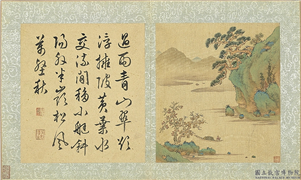 過雨青山翠欲
浮擁陂黃葉水
交流閒移小艇斜
陽外半嶺松風
萬壑秋
國立故宮博物院